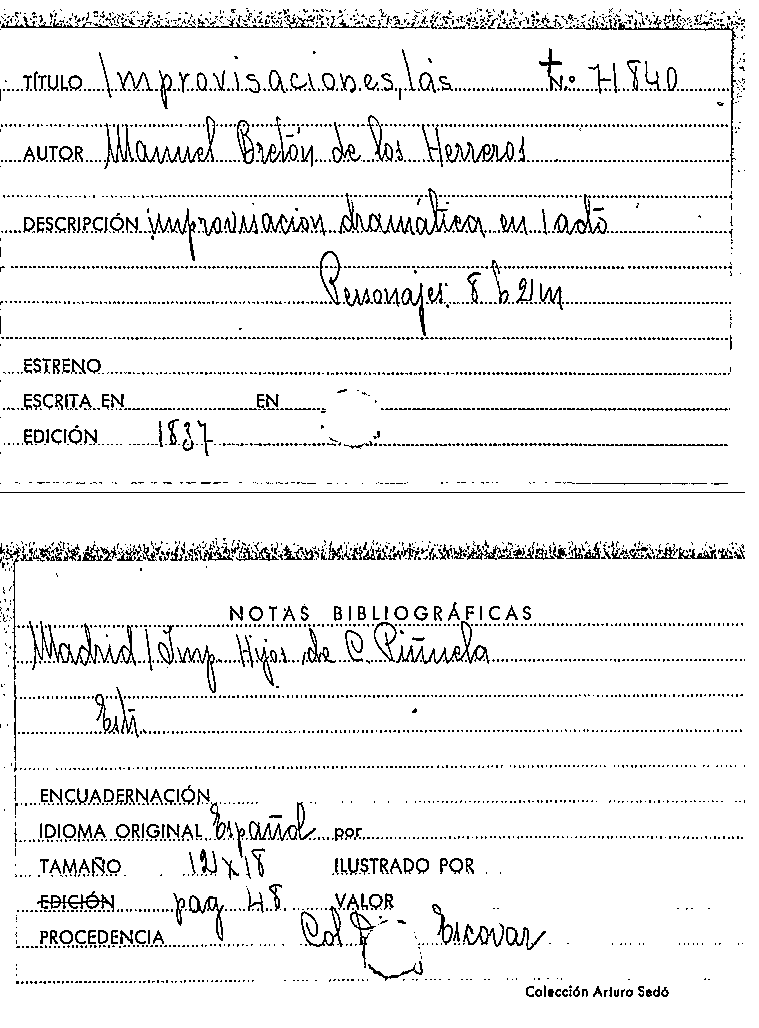 TÍTULO Improvisaciones, las t. nº 71840
AUTOR Manuel Bretón de los Herreros
DESCRIPCIÓN improvisación dramática en 1 acto
Personajes: 8 h 2 m
ESTRENO
ESCRITA EN EN
EDICIÓN 1837
NOTAS BIBLIOGRÁFICAS
Madrid / Imp. Hijos de C. Piñuela
ENCUADERNACIÓN
IDIOMA ORIGINAL Español por
TAMAÑO 12 x 18 ILUSTRADO POR
EDICIÓN pag 48 VALOR
PROCEDENCIA Col Escovar
Colección Arturo Sedó